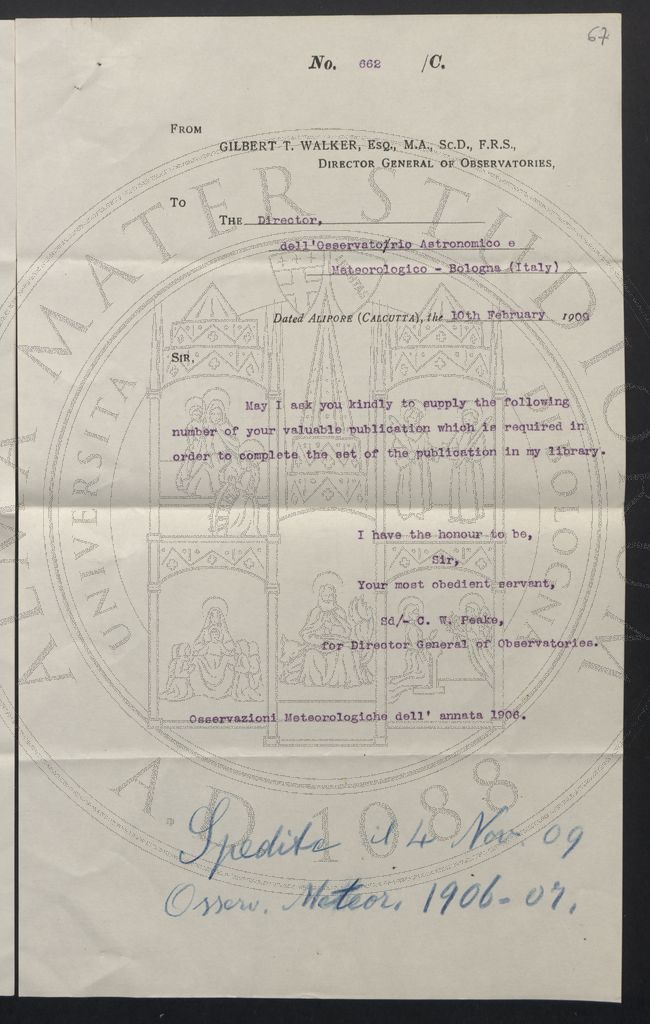 67
No. 662 /C.
FROM
GILBERT T. WALKER, ESQ., M.A., SC.D., F.R.S.,
DIRECTOR GENERAL OF OBSERVATORIES,
TO
THE Director,
dell'Osservatorio Astronomico e
Meteorologico - Bologna (Italy)
Dated ALIPORE (CALCUTTA), the 10th February 1909
SIR,
May I ask you kindly to supply the following
number of your valuable publication which is required in
order to complete the set of the publication in my library.
I have the honour to be,
Sir,
Your most obedient servant,
Sd/- C. W. Peake,
for Director General of Observatories.
Osservazioni Meteorologiche dell' annata 1906.
Spedite il 4 Nov. 09
Osserv. Meteor. 1906-07.
ALMA MATER STUDIORUM
UNIVERSITA DI BOLOGNA
A.D. 1088